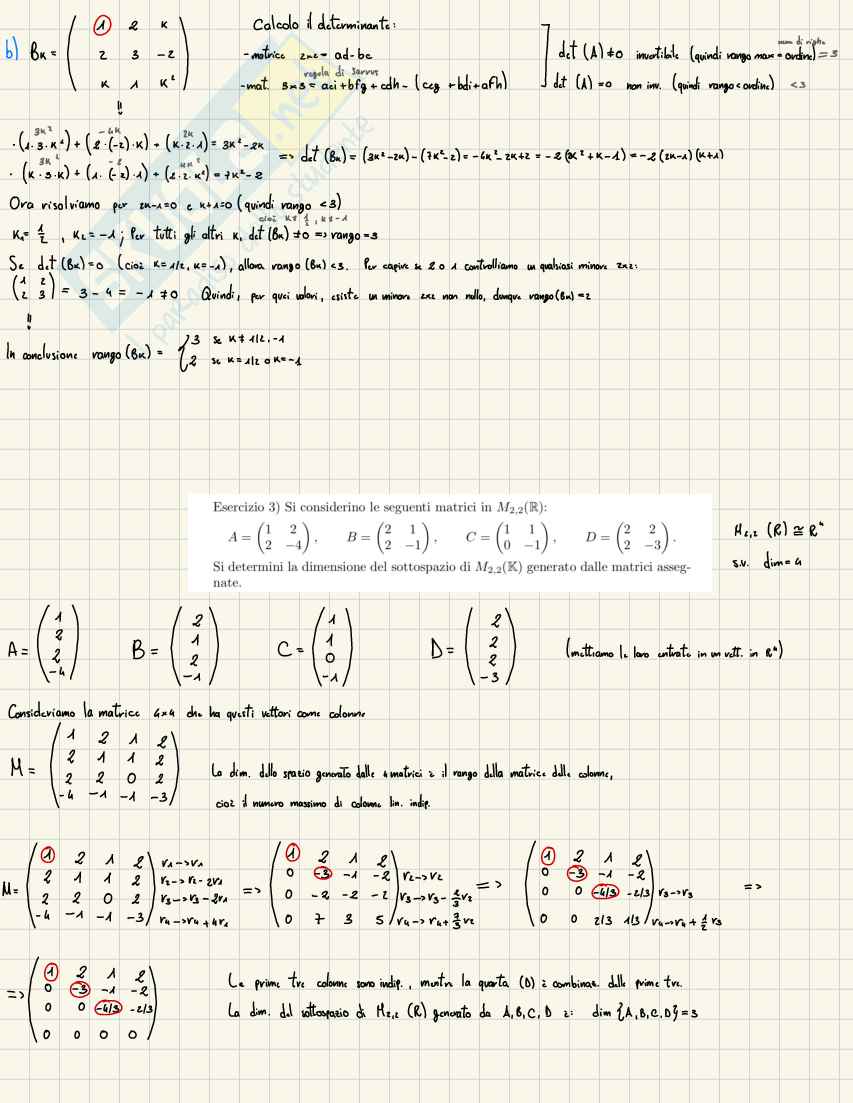 b) Bκ = ( 1 2 κ
2 3 -2
κ 1 κ² )
Calcolo il determinante:
- matrice 2x2 = ad-bc
regola di Sarrus
- mat. 3x3 = aei+bfg+cdh-(ceg+bdi+afh)
num di righe
det (A) ≠0 invertibile (quindi rango max = ordine) =3
det (A) =0 non inv. (quindi rango < ordine) <3
3κ² -4κ 2κ
· (1·3·κ²) + (2·(-2)·κ) + (κ·2·1) = 3κ²-2κ
3κ² -2 4κ²
· (κ·3·κ) + (1·(-2)·1) + (2·2·κ²) = 7κ²-2
=> det (Bκ) = (3κ²-2κ)-(7κ²-2) = -4κ²-2κ+2 = -2(2κ²+κ-1) = -2(2κ-1)(κ+1)
Ora risolviamo per 2κ-1=0 e κ+1=0 (quindi rango <3)
cioè κ≠1/2, κ≠-1
κ₁=1/2, κ₂=-1; Per tutti gli altri κ, det (Bκ) ≠0 => rango=3
Se det (Bκ)=0 (cioè κ=1/2, κ=-1), allora rango (Bκ) <3. Per capire se 2 o 1 controlliamo un qualsiasi minore 2x2:
( 1 2
2 3 ) = 3-4 = -1 ≠0 Quindi, per quei valori, esiste un minore 2x2 non nullo, dunque rango(Bκ)=2
In conclusione rango (Bκ) = { 3 se κ≠1/2,-1
2 se κ=1/2 o κ=-1
Esercizio 3) Si considerino le seguenti matrici in M₂,₂(ℝ):
A = ( 1 2
2 -4 ), B = ( 2 1
2 -1 ), C = ( 1 1
0 -1 ), D = ( 2 2
2 -3 ).
Si determini la dimensione del sottospazio di M₂,₂(𝕂) generato dalle matrici asseg-
nate.
M₂,₂ (R) ≅ R⁴
s.v. dim=4
A = ( 1
2
2
-4 )
B = ( 2
1
2
-1 )
C = ( 1
1
0
-1 )
D = ( 2
2
2
-3 )
(mettiamo le loro entrate in un vett. in R⁴)
Consideriamo la matrice 4x4 che ha questi vettori come colonne
M = ( 1 2 1 2
2 1 1 2
2 2 0 2
-4 -1 -1 -3 )
La dim. dello spazio generato dalle 4 matrici è il rango della matrice delle colonne,
cioè il numero massimo di colonne lin. indip.
M = ( 1 2 1 2 r₁->r₁
2 1 1 2 r₂->r₂-2r₁
2 2 0 2 r₃->r₃-2r₁
-4 -1 -1 -3 ) r₄->r₄+4r₁
=> ( 1 2 1 2
0 -3 -1 -2 r₂->r₂
0 -2 -2 -2 r₃->r₃-2/3r₂
0 7 3 5 ) r₄->r₄+7/3r₂
=> ( 1 2 1 2
0 -3 -1 -2
0 0 -4/3 -2/3 r₃->r₃
0 0 2/3 1/3 ) r₄->r₄+1/2r₃
=>
=> ( 1 2 1 2
0 -3 -1 -2
0 0 -4/3 -2/3
0 0 0 0 )
Le prime tre colonne sono indip., mentre la quarta (D) è combinaz. delle prime tre.
La dim. del sottospazio di M₂,₂ (R) generato da A,B,C,D è: dim {A,B,C,D}=3